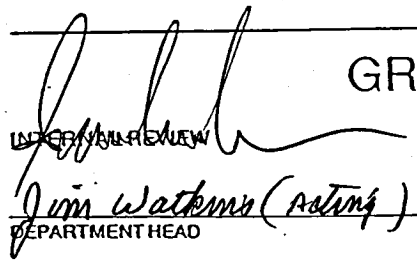 GR
INTERNAL REVIEW
Jim Watkins (Acting)
DEPARTMENT HEAD